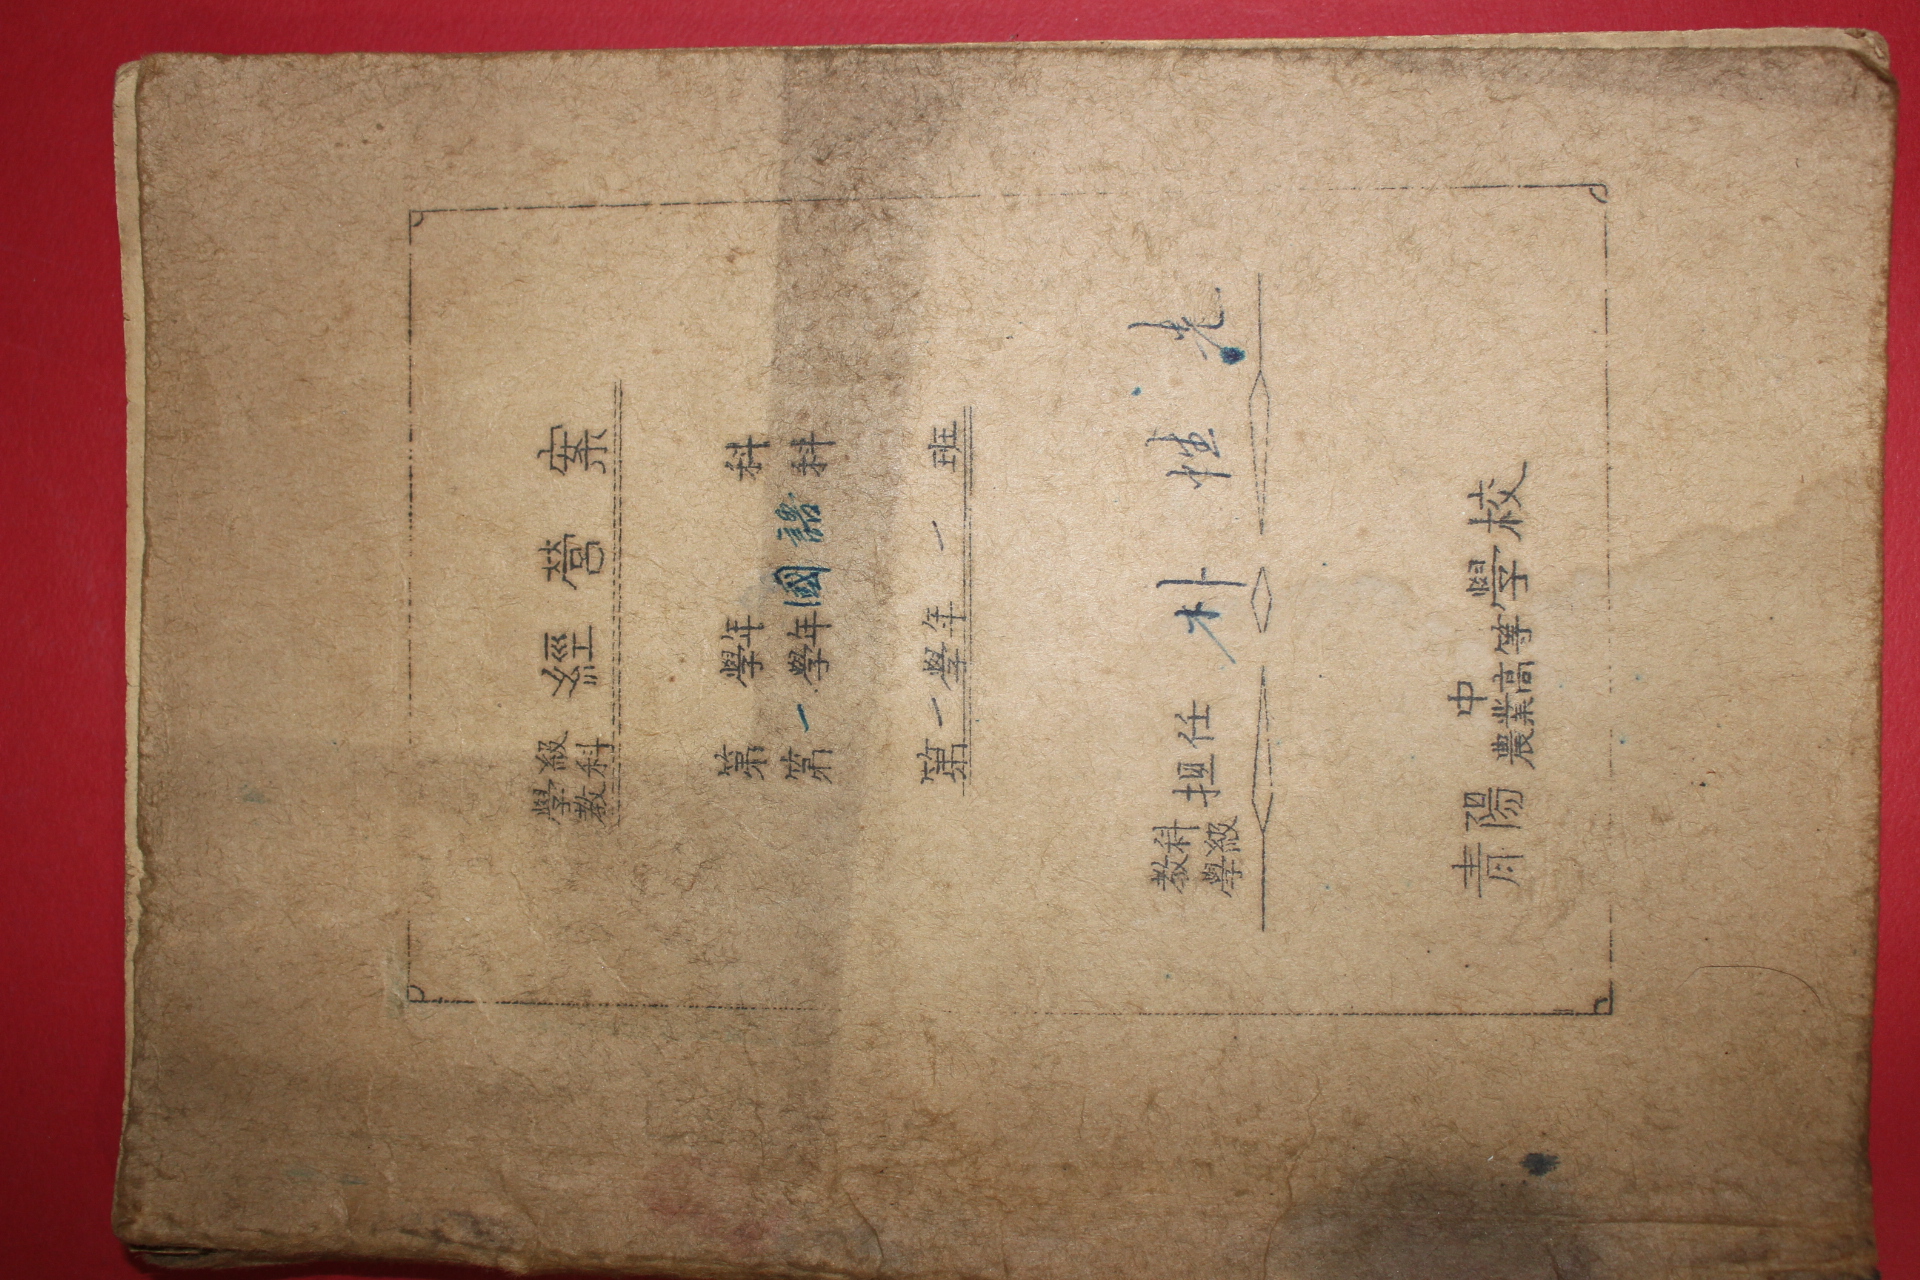 學級
教科 經營案
第 學年 科
第一學年國語科
第一學年 一班
教科
學級 担任 朴性老
中
靑陽農業高等學校